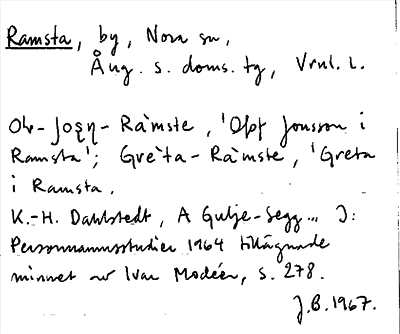 Ramsta, by, Nora sn,
Ång. s. doms. tg, Vrnl. l.
Ol-Josn-Ràmste, 'Olof Jonsson i
Ramsta'; Grè'ta-Ràmste, 'Greta
i Ramsta.
K.-H. Dahlstedt, A Gulje-Segg... I:
Personnamnsstudier 1964 tillägnade
minnet av Ivar Modéer, s. 278.
J.B. 1967.